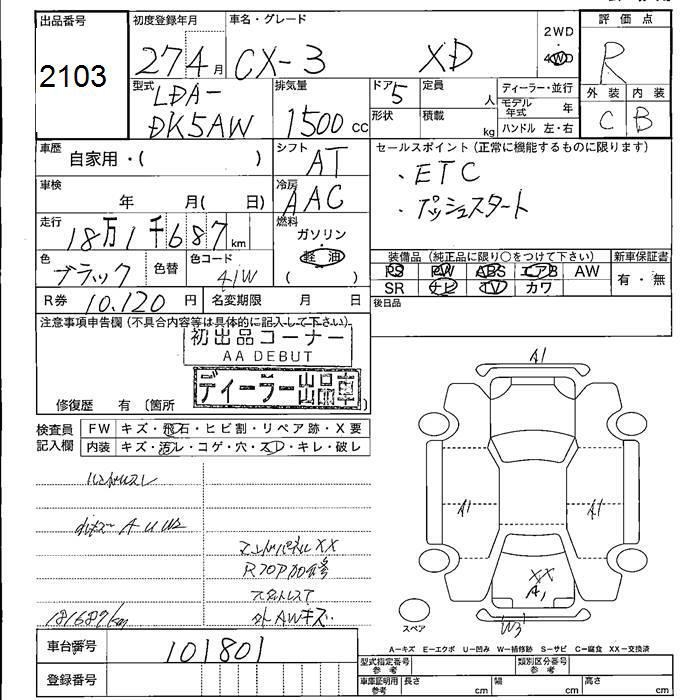 出品番号 初度登録年月 車名・グレード 2WD 評価点
2103 27 4月 CX-3 XD 4WD R
型式 LDA- 排気量 ドア 5 定員 人 ディーラー・並行 外装 内装
DK5AW 1500cc 形状 積載 kg モデル年式 年 C B
ハンドル 左・右
車歴 自家用・( ) シフト AT セールスポイント(正常に機能するものに限ります)
車検 年 月( 日) 冷房 AAC ・ETC
・プッシュスタート
走行 18万1千687km 燃料 ガソリン
軽油
( )
色 ブラック 色替 色コード 41W 装備品(純正品に限り○をつけて下さい) 新車保証書
PS PW ABS エアB AW 有・無
SR ナビ TV カワ
R券 10.120円 名変期限 月 日 後日品
注意事項申告欄(不具合内容等は具体的に記入して下さい)
初出品コーナー
AA DEBUT
ディーラー出品車
修復歴 有 〔箇所 〕
検査員記入欄 FW キズ・飛石・ヒビ割・リペア跡・X要
内装 キズ・汚レ・コゲ・穴・スレ・キレ・破レ
ハンドルスレ
A U W2
エンドパネルXX
181687km 外AWキズ
A1
A1 A1
XX
A1
W3
スペア
A-キズ E-エクボ U-凹み W-補修跡 S-サビ C-腐食 XX-交換済
車台番号 101801
登録番号
型式指定番号 参考 類別区分番号 参考
車庫証明用 参考 長さ cm 幅 cm 高さ cm